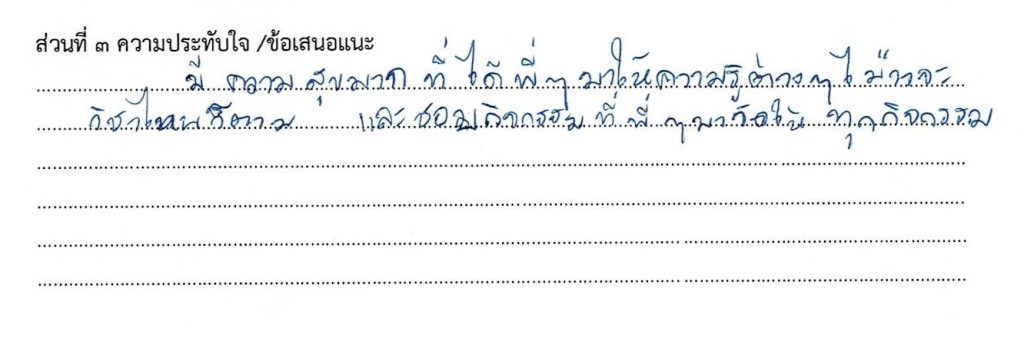 ส่วนที่ ๓ ความประทับใจ /ข้อเสนอแนะ
มี ความสุขมาก ที่ ได้พี่ๆมาให้ความรู้ต่างๆไม่ว่าจะ
วิชาไหนก็ตาม และชอบกิจกรรมที่พี่ๆมาจัดให้ ทุกกิจกรรม